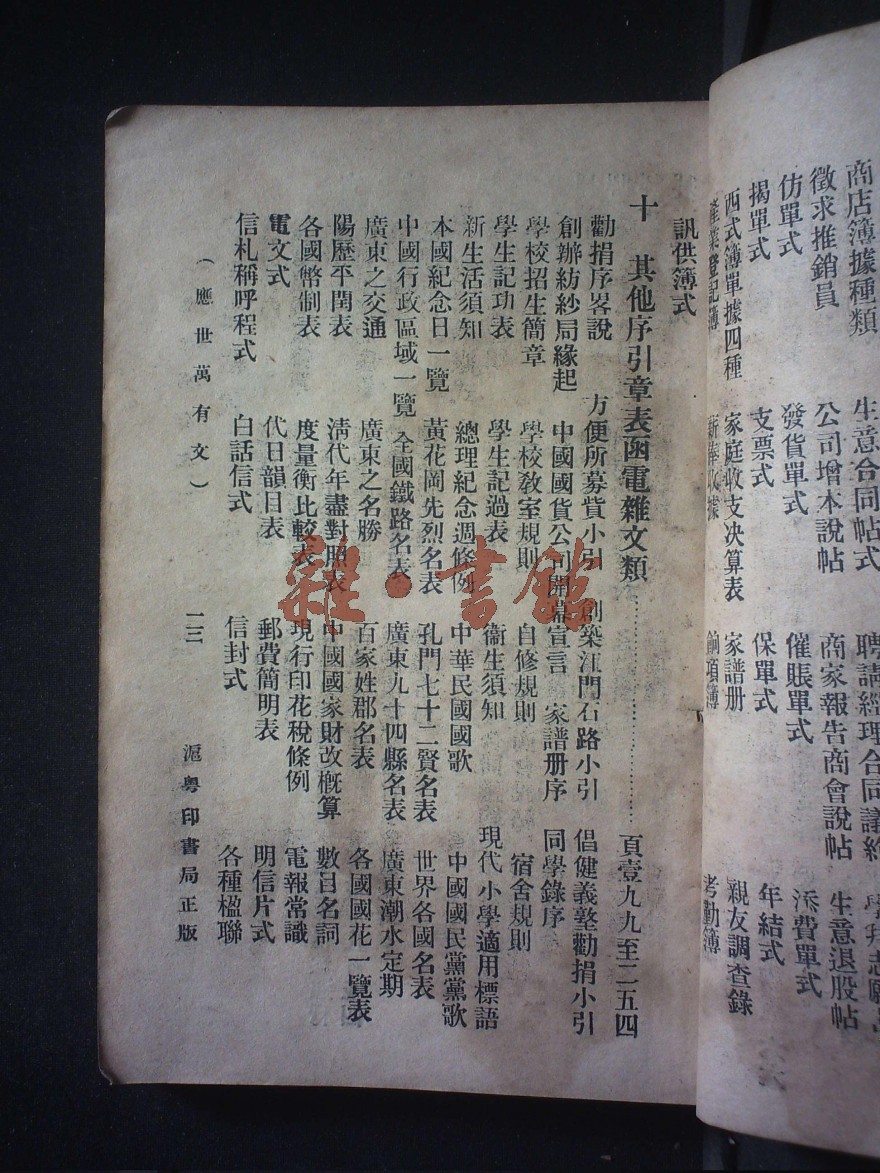 商店簿據種類　生意合同帖式　聘請經理合同議約
徵求推銷員　公司增本說帖　商家報告商會說帖　生意退股帖
仿單式　發貨單式　催賬單式　添費單式
揭單式　支票式　保單式　年結式
西式簿單據四種　家庭收支决算表　家譜册　親友調查錄
產業登記簿　考勤簿
訊供簿式
十　其他序引章表函電雜文類……頁壹九九至二五四
勸捐序畧說　方便所募貲小引　創築江門石路小引　倡健義塾勸捐小引
創辦紡紗局緣起　中國國貨公司開幕宣言　家譜册序　同學錄序
學校招生簡章　學校教室規則　自修規則　宿舍規則
學生記功表　學生記過表　衞生須知　現代小學適用標語
新生活須知　總理紀念週條例　中華民國國歌　中國國民黨黨歌
本國紀念日一覽　黃花岡先烈名表　孔門七十二賢名表　世界各國名表
中國行政區域一覽　全國鐵路名表　廣東九十四縣名表　廣東潮水定期
廣東之交通　廣東之名勝　百家姓郡名表　各國國花一覽表
陽歷平閏表　淸代年盡對照表　中國國家財改概算　數目名詞
各國幣制表　度量衡比較表　現行印花稅條例　電報常識
電文式　代日韻目表　郵費簡明表　明信片式
信札稱呼程式　白話信式　信封式　各種楹聯
（應世萬有文）　一三　滬粵印書局正版
雜·書館